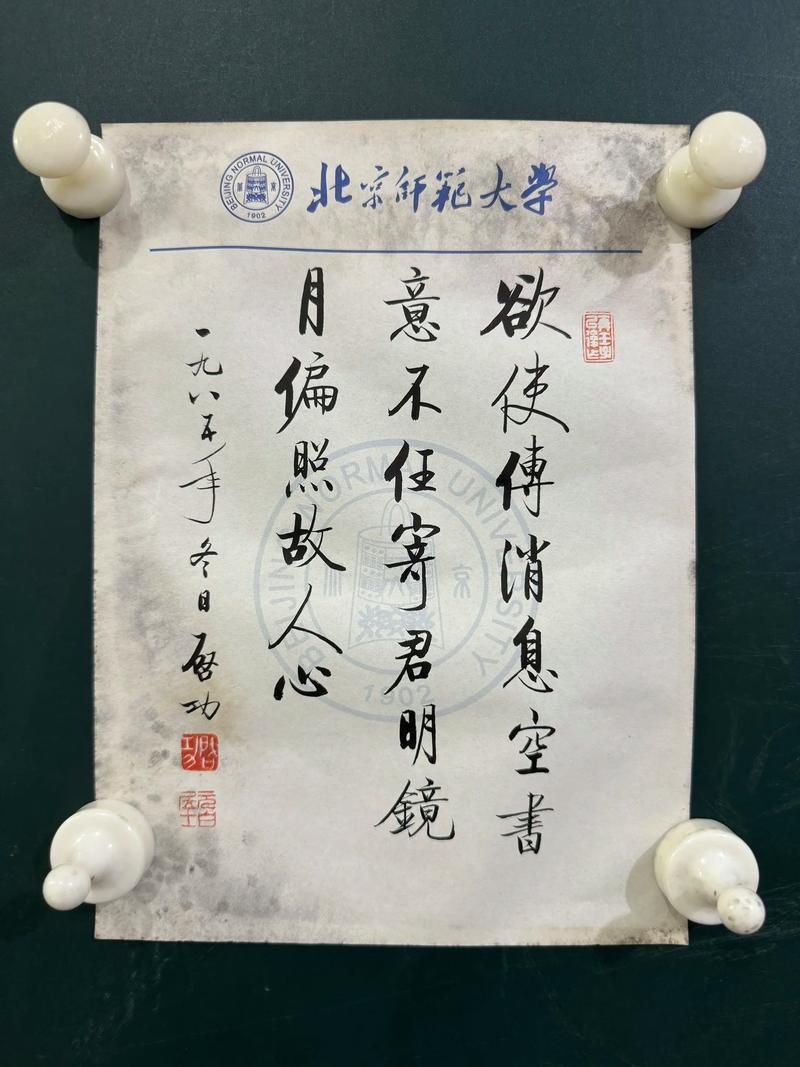 BEIJING NORMAL UNIVERSITY
1902
北京师範大學
欲使傳消息空書
意不任寄君明鏡
月偏照故人心
一九八五年冬日啓功
啓功
BEIJING NORMAL UNIVERSITY
1902